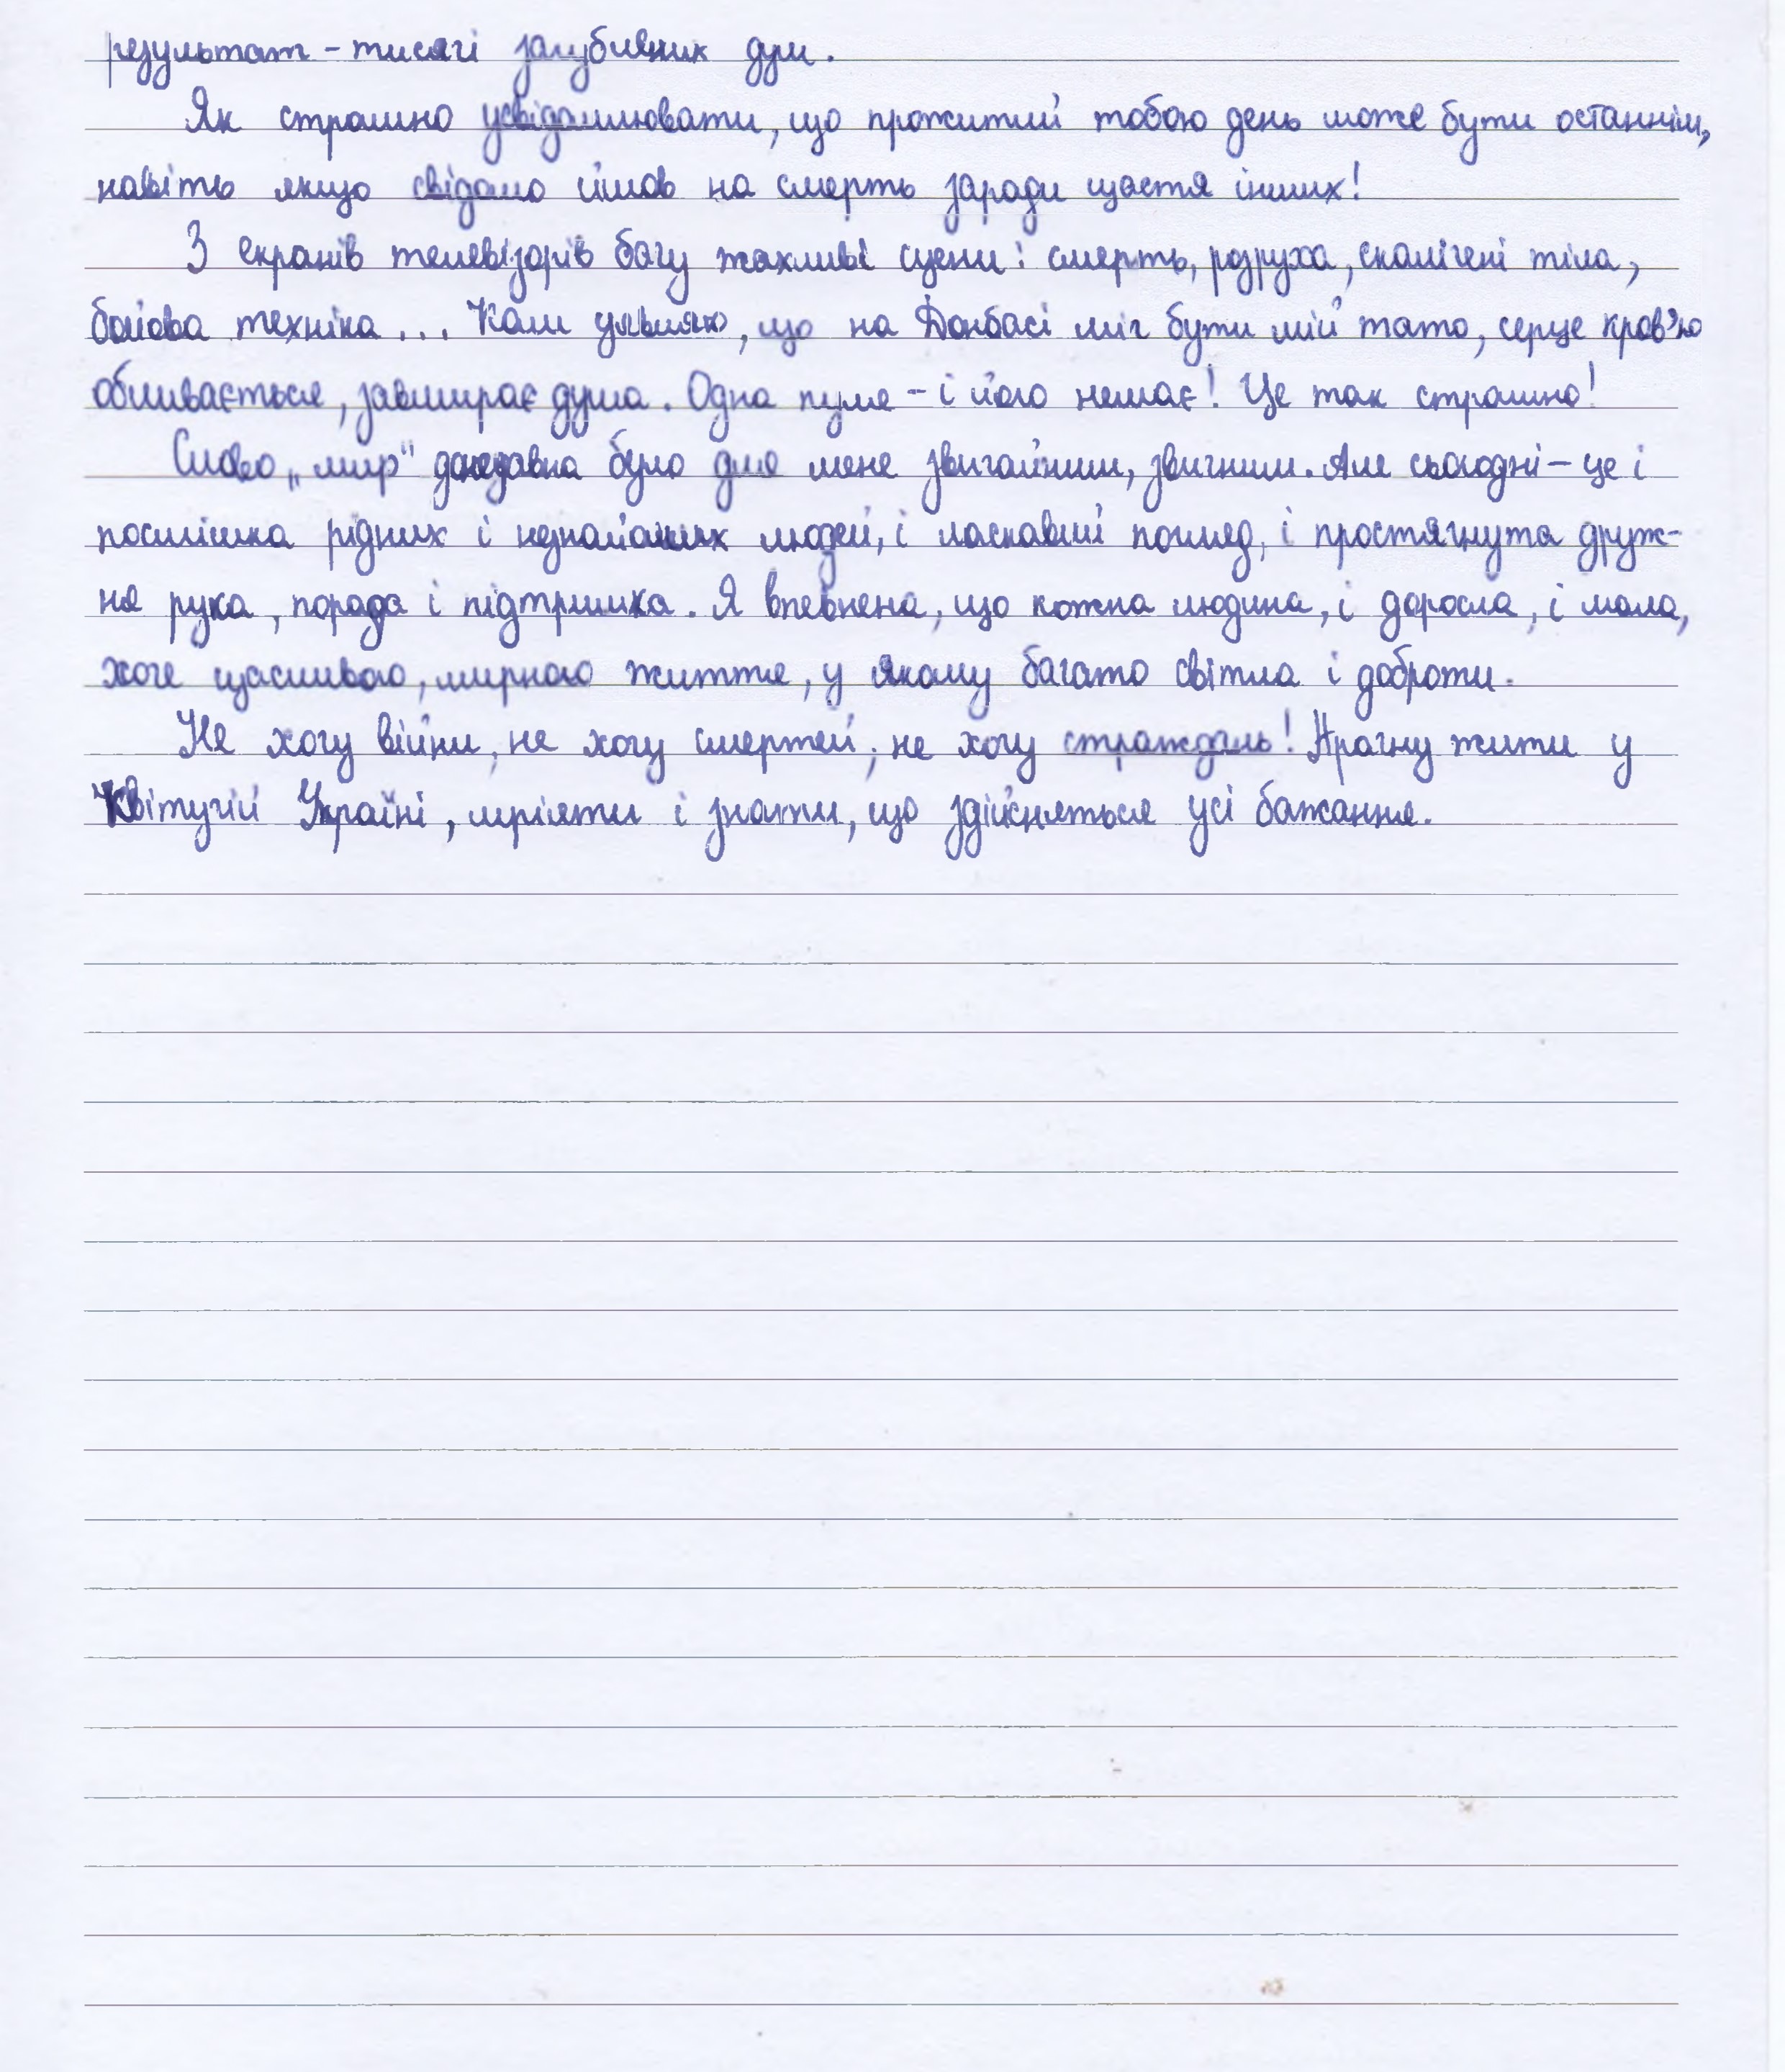 результат – тисячі загублених душ.
Як страшно усвідомлювати, що прожитий тобою день може бути останнім,
навіть якщо свідомо йшов на смерть заради щастя інших!
З екранів телевізорів бачу жахливі сцени: смерть, розруха, скалічені тіла,
бойова техніка... Коли уявляю, що на Донбасі міг бути мій тато, серце кров'ю
обливається, завмирає душа. Одна пуля – і його немає! Це так страшно!
Слово „мир" донедавна було для мене звичайним, звичним. Але сьогодні – це і
посмішка рідних і незнайомих людей, і ласкавий погляд, і простягнута друж-
ня рука, порада і підтримка. Я впевнена, що кожна людина, і доросла, і мала,
хоче щасливого, мирного життя, у якому багато світла і доброти.
Не хочу війни, не хочу смертей, не хочу страждань! Прагну жити у
Квітучій Україні, мріяти і знати, що здійсняться усі бажання.